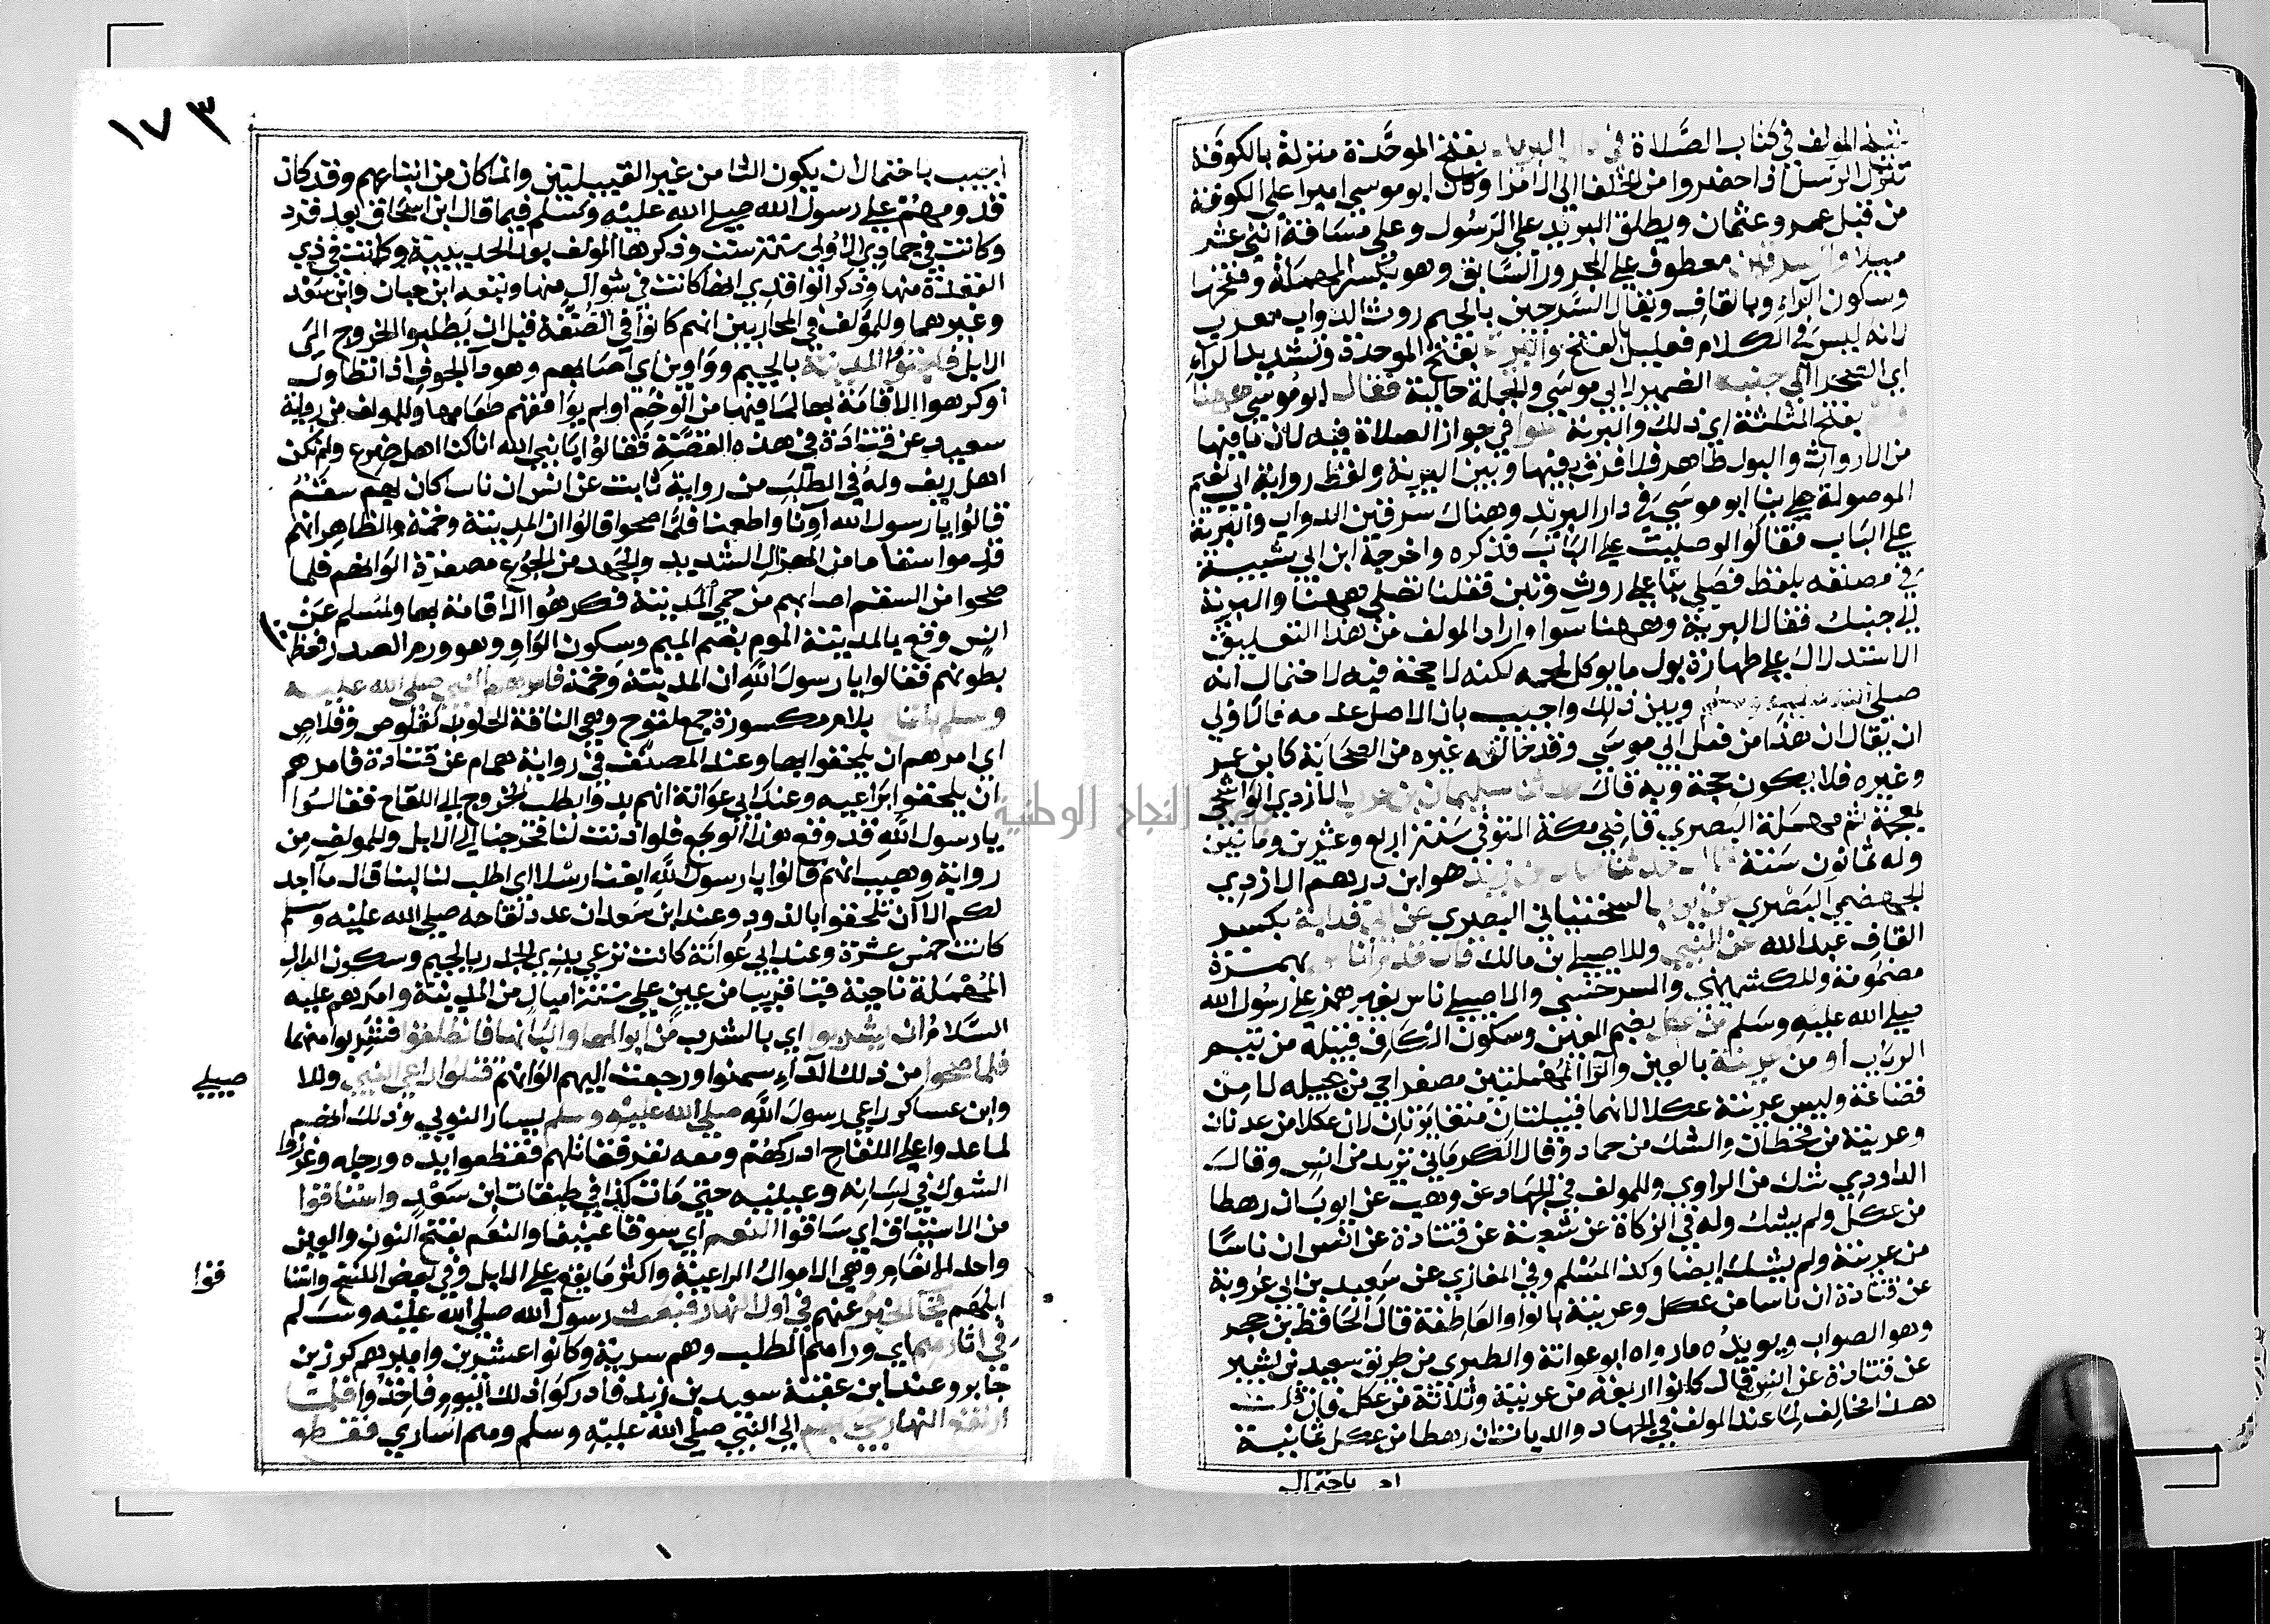 المولف في كتاب الصلاة في دار البريد بفتح الموحدة منزلة بالكوفة
تنزل الرسل اذا حضروا من الخلفا الى الامرا وكان ابو موسى اميرا على الكوفة
من قبل عمر وعثمان ويطلق البريد على الرسول وعلى مسافة اثنى عشر
ميلا والسرقين معطوف على المجرور السابق وهو بكسر المهملة وفتحها
وسكون الراء وبالقاف ويقال السرجين بالجيم روث الدواب معرب
لانه ليس في الكلام فعليل بالفتح والبرية بفتح الموحدة وتشديد الراء
اي الصحرا الى جنبه الضمير لابي موسى والجملة حالية فقال ابو موسى ههنا
وثم بفتح المثلثة اي ذلك والبرية سوا في جواز الصلاة فيه لان ما فيها
من الارواث والبول طاهر فلا فرق بينها وبين البرية ولفظ رواية ابي نعيم
الموصولة صلى بنا ابو موسى في دار البريد وهناك سرقين الدواب والبرية
على الباب فقالوا لو صليت على الباب فذكره واخرجه ابن ابي شيبة
في مصنفه بلفظ فصلى بنا على روث وتبن فقلنا تصلي ههنا والبرية
الى جنبك فقال البرية وههنا سوا واراد المولف من هذا التعليق
الاستدلال على طهارة بول ما يوكل لحمه لكنه لا حجة فيه لاحتمال انه
صلى الله عليه وسلم وبين ذلك واجيب بان الاصل عدمه فالاولى
ان يقال ان هذا من فعل ابي موسى وقد خالفه غيره من الصحابة كابن عمر
وغيره فلا يكون حجة وبه قال حدثنا سليمان بن حرب الازدي الواشحي
بمعجمة ثم مهملة البصري قاضي مكة المتوفى سنة اربع وعشرين ومائتين
وله ثمانون سنة قال حدثنا حماد بن زيد هو ابن درهم الازدي
الجهضمي البصري عن ايوب السختياني البصري عن ابي قلابة بكسر
القاف عبد الله عن انس وللاصيلي ابن مالك قال قدم اناس بهمزة
مضمومة وللكشميهني والسرخسي والاصيلي ناس بغير همز على رسول الله
صلى الله عليه وسلم من عكل بضم العين وسكون الكاف قبيلة من تيم
الرباب او من عرينة بالعين والرا المهملتين مصغرا حي من بجيلة لا من
قضاعة وليس عرينة عكلا لانهما قبيلتان متغايرتان لان عكلا من عدنان
وعرينة من قحطان والشك من حماد وقال الكرماني تزيد من انس وقال
الداودي شك من الراوي وللمولف في الجهاد عن وهيب عن ايوب ان رهطا
من عكل ولم يشك وله في الزكاة عن شعبة عن قتادة عن انس ان ناسا
من عرينة ولم يشك ايضا وكذا لمسلم وفي المغازي عن سعيد بن ابي عروبة
عن قتادة ان ناسا من عكل وعرينة بالواو العاطفة قال الحافظ بن حجر
وهو الصواب ويويده ما رواه ابو عوانة والطبري من طريق سعيد بن بشير
عن قتادة عن انس قال كانوا اربعة من عرينة وثلاثة من عكل فان قلت
هذا مخالف لما عند المولف في الجهاد والديات ان رهطا من عكل ثمانية
١٧٣
اجيب باحتمال ان يكون الثامن غير القبيلتين وانما كان من اتباعهم وقد كان
قدومهم على رسول الله صلى الله عليه وسلم فيما قال ابن اسحاق بعد قرد
وكانت في جمادى الاولى سنة ست وذكرها المولف بعد الحديبية وكانت في ذي
القعدة منها وذكر الواقدي انها كانت في شوال منها وتبعه ابن حبان وابن سعد
وغيرهما وللمؤلف في المحاربين انهم كانوا في الصفة قبل ان يطلبوا الخروج الى
الابل فاجتووا المدينة بالجيم وواوين اي اصابهم وهو داء الجوف اذا تطاول
او كرهوا الاقامة بها لما فيها من الوخم او لم يوافقهم طعامها وللمولف من رواية
سعيد عن قتادة في هذه القصة فقالوا يا نبي الله انا كنا اهل ضرع ولم نكن
اهل ريف وله في الطب من رواية ثابت عن انس ان ناسا كان بهم سقم
قالوا يا رسول الله آونا واطعمنا فلما صحوا قالوا ان المدينة وخمة والظاهر انهم
قدموا سقاما من الهزال الشديد والجهد من الجوع مصفرة الوانهم فلما
صحوا من السقم اصابهم من حمى المدينة فكرهوا الاقامة بها ولمسلم عن
انس وقع بالمدينة الموم بضم الميم وسكون الواو وهو ورم الصدر فعظمت
بطونهم فقالوا يا رسول الله ان المدينة وخمة فامرهم النبي صلى الله عليه
وسلم بلقاح بلام مكسورة جمع لقوح وهي الناقة الحلوب كقلوص وقلاص
اي امرهم ان يلحقوا بها وعند المصنف في رواية همام عن قتادة فامرهم
ان يلحقوا براعيه وعند ابي عوانة انهم بدوا بطلب الخروج الى اللقاح فقالوا
يا رسول الله قد وقع هذا الوجع فلو اذنت لنا فخرجنا الى الابل وللمولف من
رواية وهيب انهم قالوا يا رسول الله ابغنا رسلا اي اطلب لنا لبنا قال ما اجد
لكم الا ان تلحقوا بالذود وعند ابن سعد ان عدد لقاحه صلى الله عليه وسلم
كانت خمس عشرة وعند ابي عوانة كانت ترعى بذي الجدر بالجيم وسكون الدال
المهملة ناحية قبا قريبا من عين على ستة اميال من المدينة وامرهم عليه
السلام ان يشربوا اي بالشرب من ابوالها والبانها فانطلقوا فشربوا منهما
فلما صحوا من ذلك الداء وسمنوا ورجعت اليهم الوانهم قتلوا راعي النبي وللا
صيلي
وابن عساكر راعي رسول الله صلى الله عليه وسلم يسار النوبي وذلك انهم
لما عدوا على اللقاح ادركهم ومعه نفر فقاتلهم فقطعوا يده ورجله وغرزوا
الشوك في لسانه وعينيه حتى مات كذا في طبقات ابن سعد واستاقوا
من الاستياق اي ساقوا النعم اي سوقا عنيفا والنعم بفتح النون والعين
واحد الانعام وهي الاموال الراعية واكثر ما يقع على الابل وفي بعض النسخ واستا
قوا
ابلهم فجاء الخبر عنهم في اول النهار فبعث رسول الله صلى الله عليه وسلم
في اثارهم اي وراهم الطلب وهم سرية وكانوا عشرين واميرهم كرز بن
جابر وعند ابن عقبة سعيد بن زيد فادركوا ذلك اليوم فاخذوا فلما
ارتفع النهار جيء بهم الى النبي صلى الله عليه وسلم وهم اسارى فقطع
جامعة النجاح الوطنية